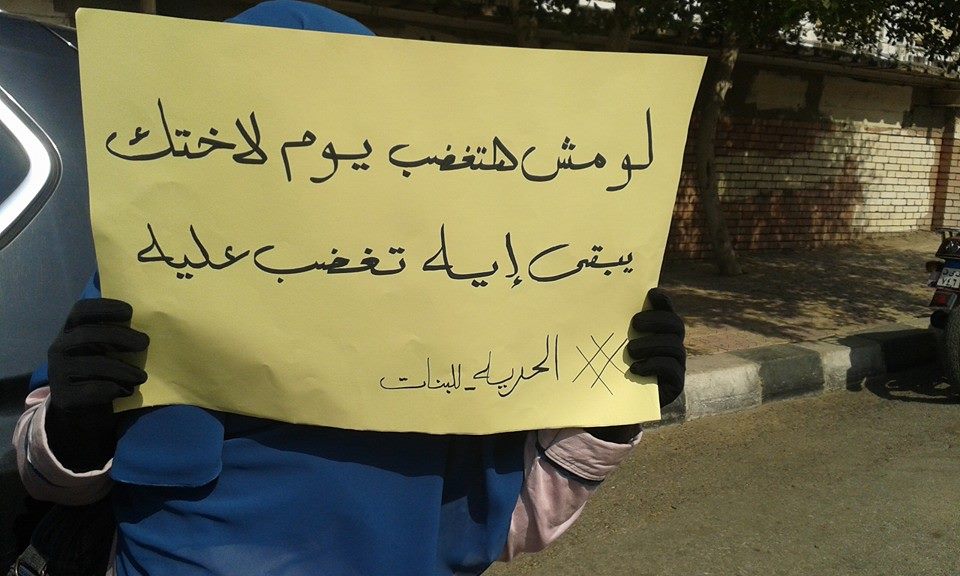 لو مش هتغضب يوم لاختك
يبقى إيه تغضب عليه
# الحريه_للبنات